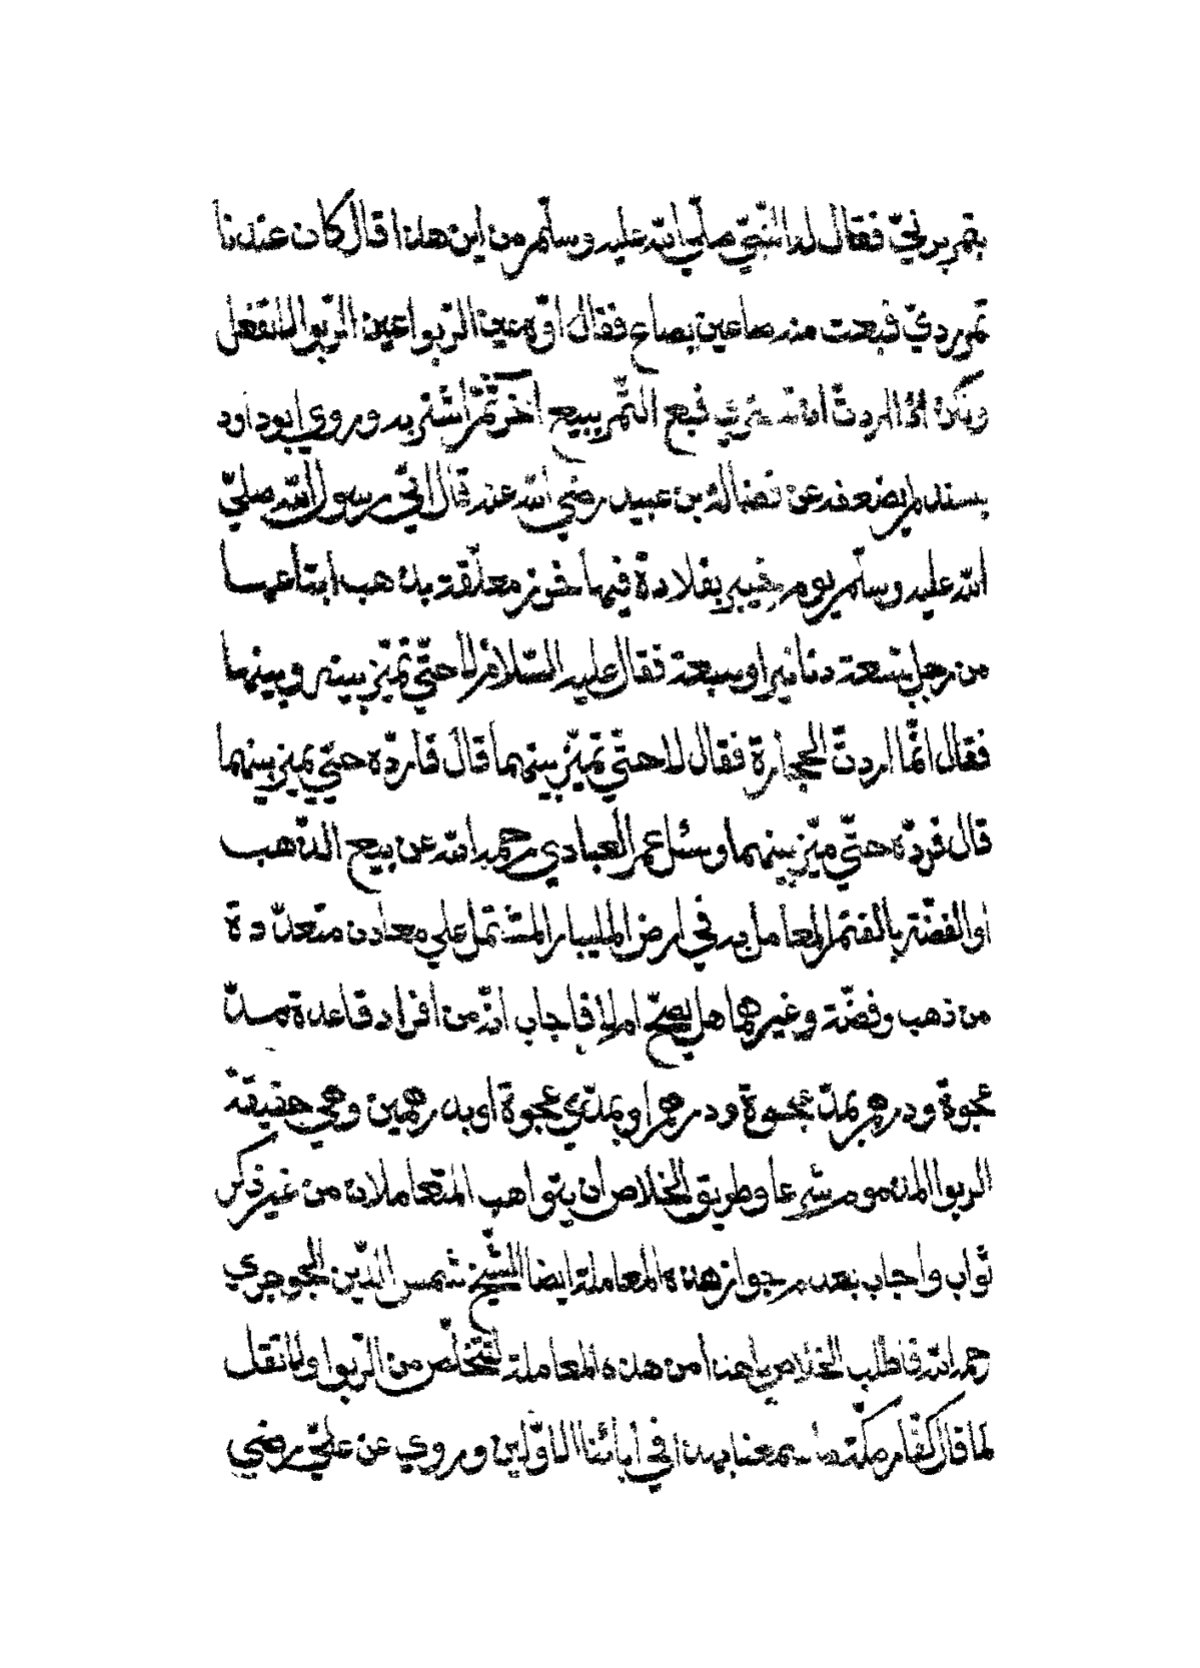 بتمر برنيّ فقال له النّبيّ صلّي الله عليه وسلّم من اين هذا قال كان عندنا
تمر رديّ فبعت منه صاعين بصاع فقال اوّه عين الرّبوا عين الرّبوا لا تفعل
ولكن اذا اردتّ ان تشتري فبع التّمر ببيع آخر ثمّ اشتر به وروي ابوداود
بسند لم يضعفه عن فضالة بن عبيد رضي الله عنه قال اتي رسول الله صلّي
الله عليه وسلّم يوم خيبر بقلادة فيها خرز معلّقة بذهب ابتاعها
من رجل بتسعة دنانير او سبعة فقال عليه السّلام لا حتّي تميّز بينه وبينها
فقال انّما اردتّ الحجارة فقال لا حتّي تميّز بينهما قال فاردّه حتّي يميز بينهما
قال فردّه حتّي ميّز بينهما وسئل عمر العبادي رحمه الله عن بيع الذّهب
او الفضّة بالفنم المعامل به في ارض المليبار المشتمل علي معادن متعدّدة
من ذهب وفضّة وغيرهما هل يصحّ ام لا فاجاب انّه من افراد قاعدة مدّ
عجوة ودرهم بمدّ عجوة ودرهم او بمدّي عجوة او بدرهمين وهي حقيقة
الربوا المذموم شرعا وطريق الخلاص ان يتواهب المتعاملان من غير ذكر
ثواب واجاب بعدم جواز هذه المعاملة ايضا الشّيخ شمس الدّين الجوجري
رحمه الله فاطلب الخلاص يا هذا من هذه المعاملة لتتخلّص من الرّبوا ولا تقل
لما قال كفّار مكّة ما سمعنا بهذا في آبائنا الاوّلين وروي عن عليّ رضي